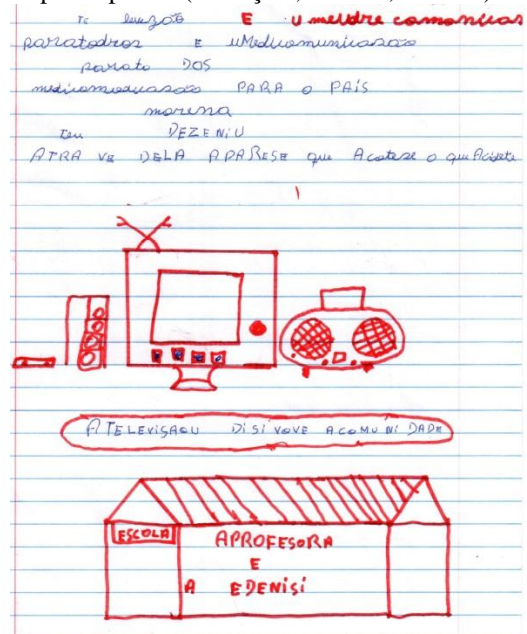 E U meldre comonicas
paratodros E uMedicomunicasao
parato DOS
PARA O PAÍS
morena
teu DEZENIU
ATRA VE DELA APARESE que Acotese o que Acotete
A TELEVISAOU DISIVOVE ACOMUNIDADE
ESCOLA
APROFESORA
E
A EDENISI